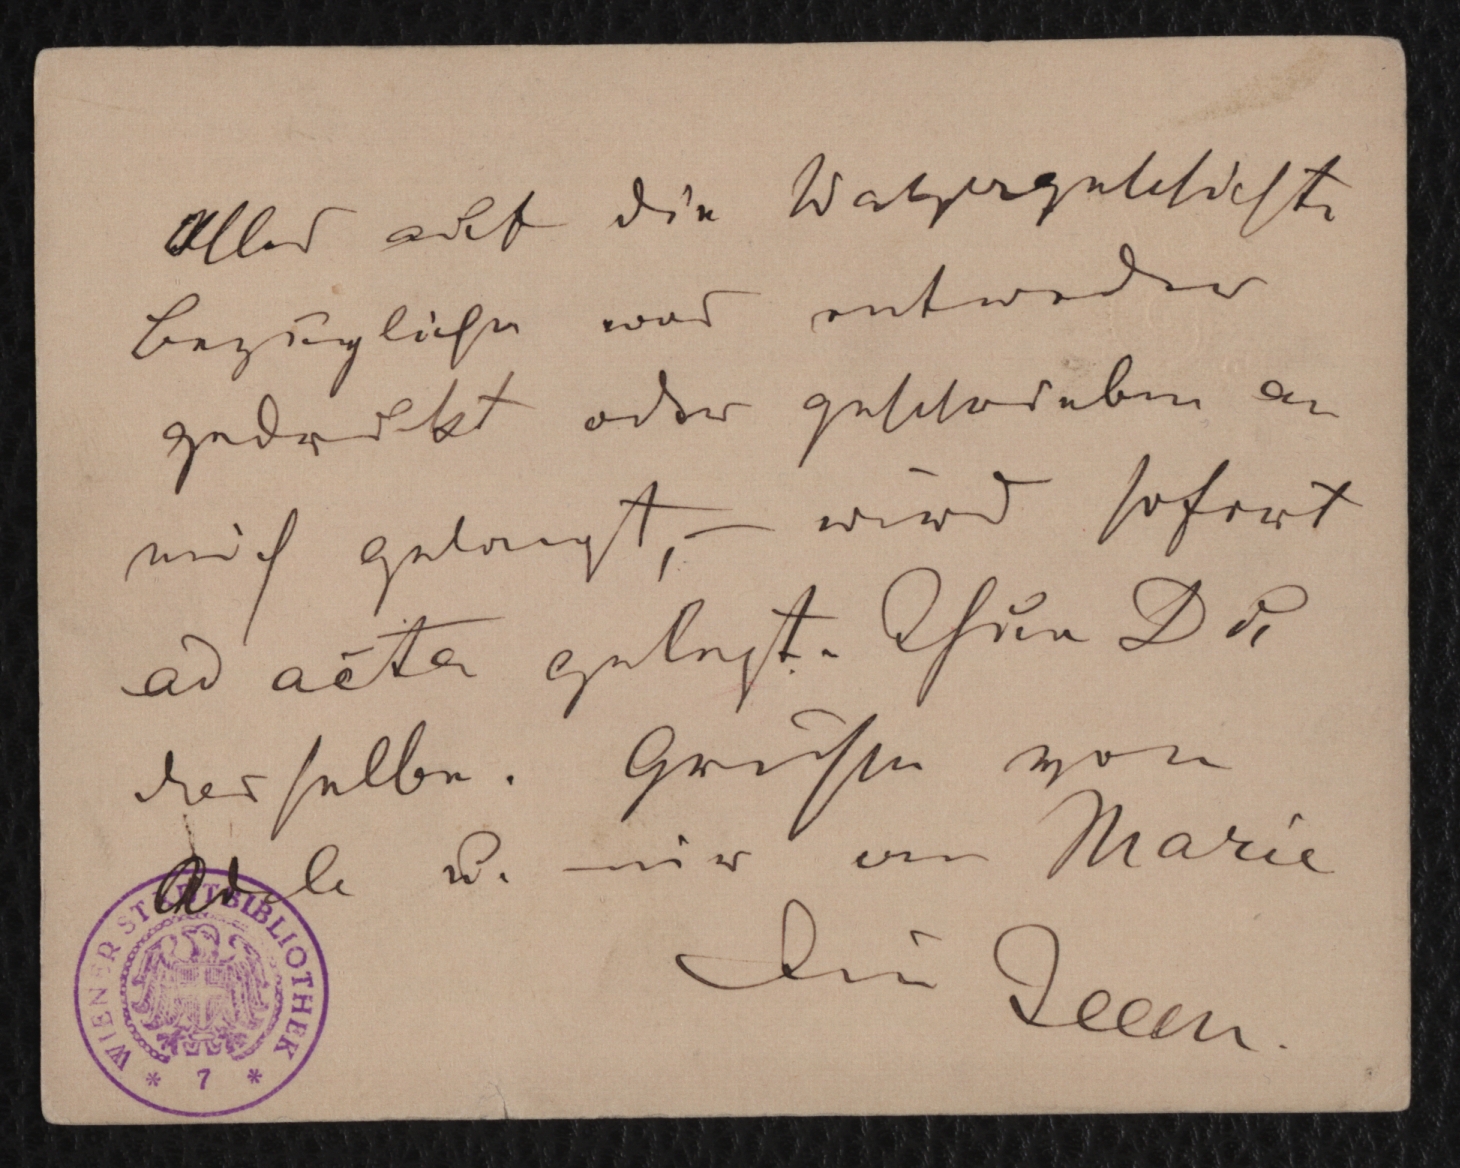 Alles auf die Walzergeschichte
bezügliche was entweder
gedruckt oder geschrieben an
mich gelangt, – wird sofort
ad acta gelegt. Thue Du
dasselbe. Grüße von
Adele u. mir an Marie
Dein Jean.
WIENER STADTBIBLIOTHEK
* 7 *